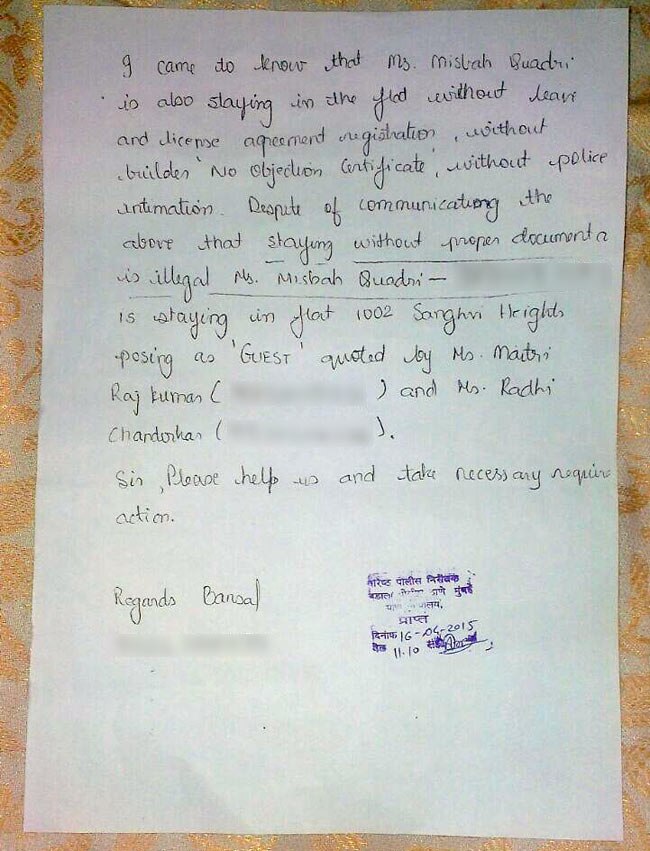 I came to know that Ms. Misbah Quadri
is also staying in the flat without leave
and license agreement registration, without
builder 'No Objection Certificate', without police
intimation. Despite of communicating the
above that staying without proper document
is illegal Ms. Misbah Quadri —
is staying in flat 1002 Sanghvi Heights
posing as 'GUEST' quoted by Ms. Maitri
Raj kumar ( ) and Ms. Radhi
Chandorkar ( ).
Sir, Please help us and take necessary require
action.
Regards Bansal
वरिष्ठ पोलीस निरीक्षक
वडाला ठाणे मुंबई
प्राप्त
दिनांक 16-04-2015
वेळ 11.10